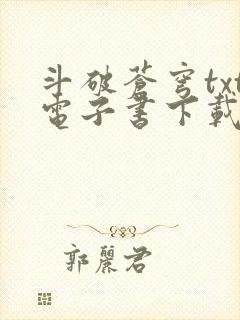 斗破蒼穹txt
電子書下載
郭麗君